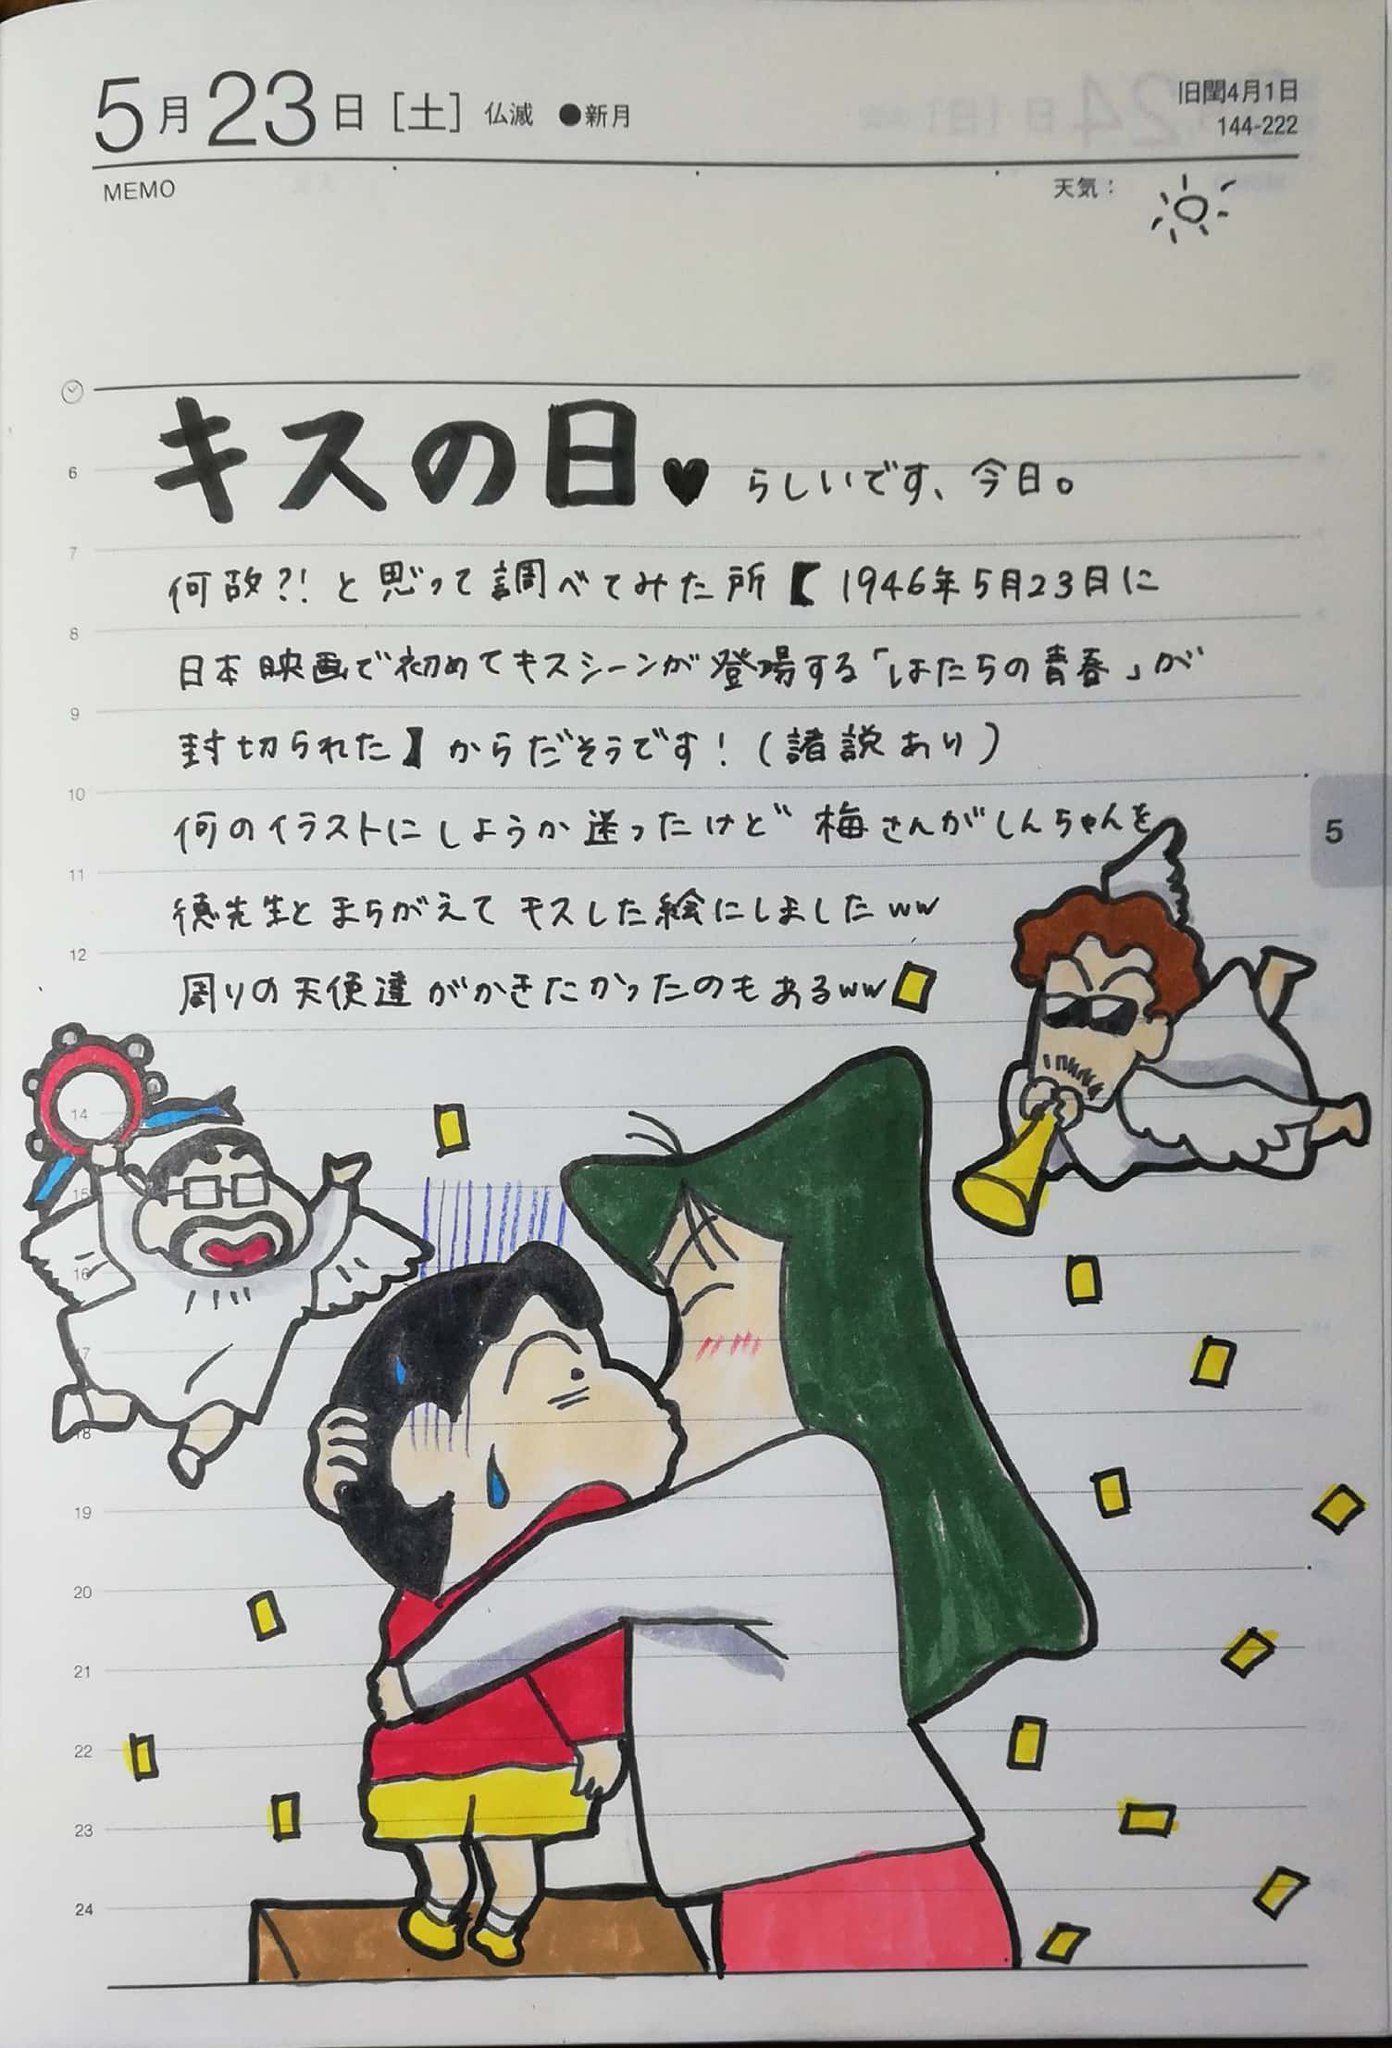 5月23日［土］ 仏滅 ●新月
旧閏4月1日
144-222
MEMO
天気：
キスの日♥ らしいです、今日。
何故?! と思って調べてみた所【 1946年5月23日に
日本映画で初めてキスシーンが登場する「はたちの青春」が
封切られた】からだそうです！（諸説あり）
何のイラストにしようか迷ったけど 梅さんがしんちゃんを
徳先生とまちがえてキスした絵にしましたww
周りの天使達がかきたかったのもあるww
5
6
7
8
9
10
11
12
14
15
16
17
18
19
20
21
22
23
24